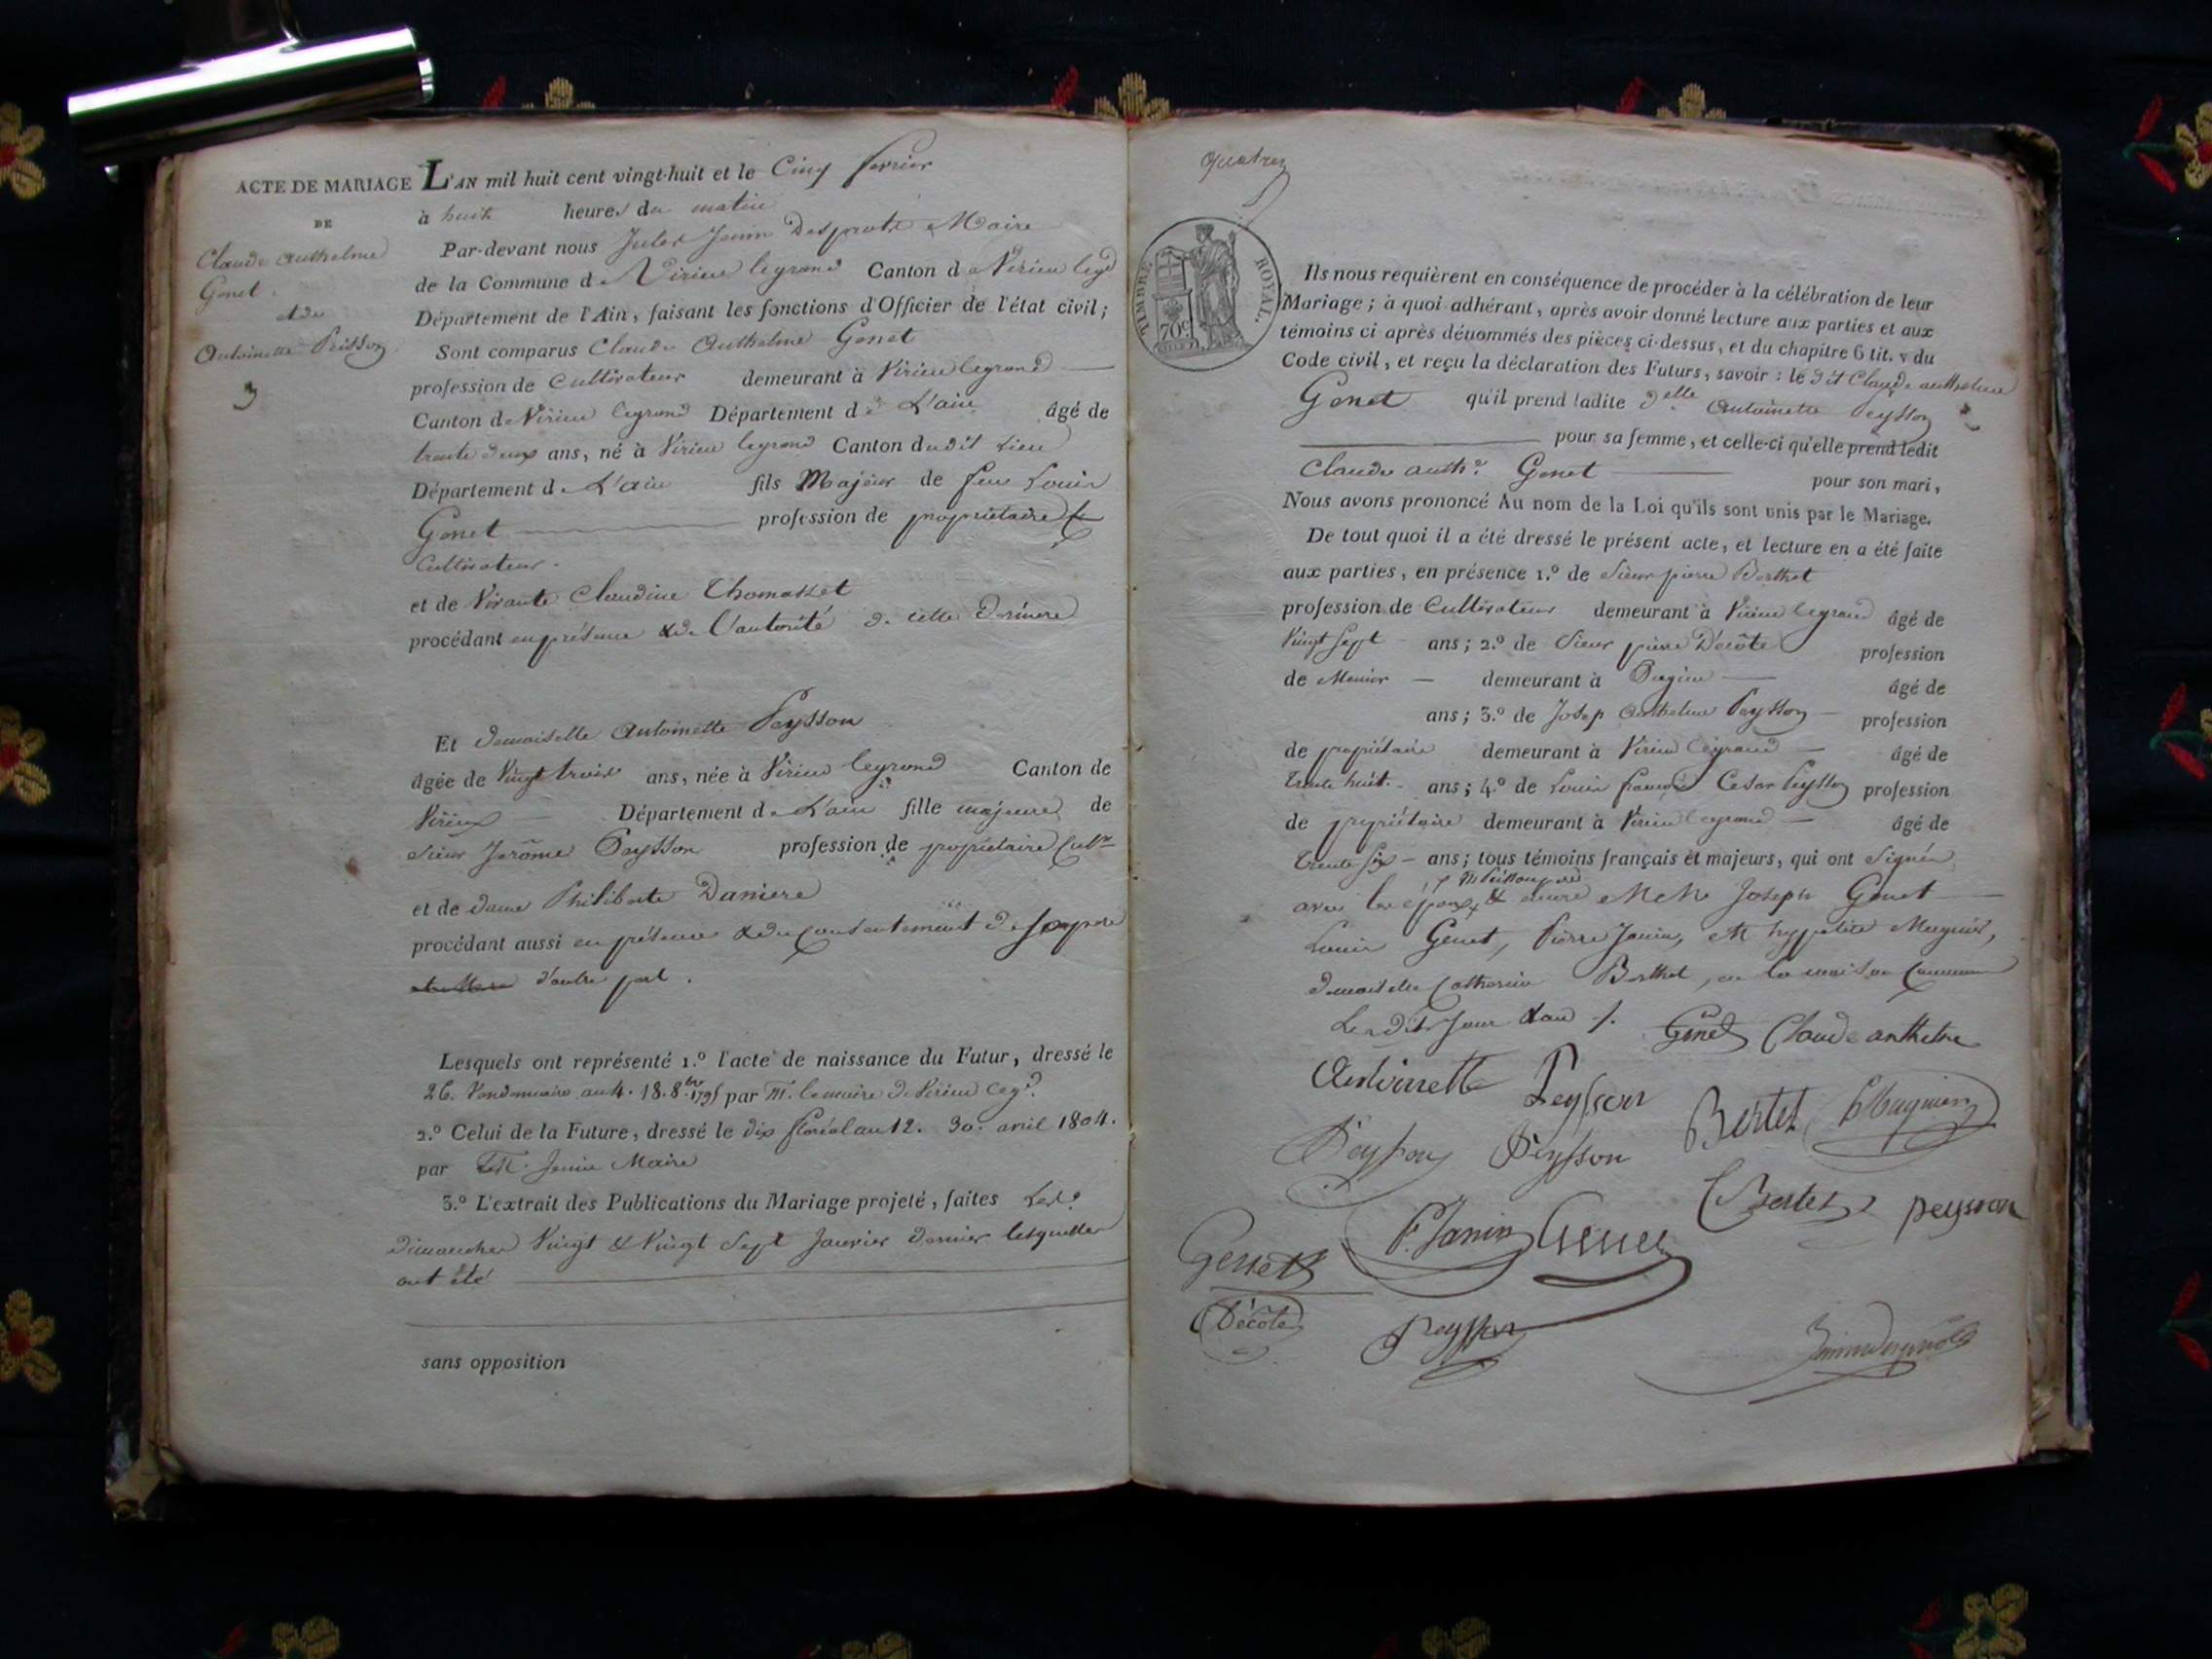 ACTE DE MARIAGE
DE
Claude anthelme
Genet
et de
Antoinette Peisson
3
L'AN mil huit cent vingt-huit et le Cinq fevrier
à huit heures du matin
Par-devant nous Jules Janin Desprots Maire
de la Commune de Virieu legrand Canton de Virieu legd
Département de l'Ain, faisant les fonctions d'Officier de l'état civil;
Sont comparus Claude Anthelme Genet
profession de Cultivateur demeurant à Virieu legrand
Canton de Virieu legrand Département de L'ain âgé de
trente deux ans, né à Virieu legrand Canton dudit Lieu
Département de L'ain fils Majeur de feu Louis
Genet profession de propriétaire
Cultivateur.
et de Vivante Claudine Thomasset
procédant en présence & de l'autorité de cette derniere
Et demoiselle Antoinette Peysson
âgée de Vingt trois ans, née à Virieu legrand Canton de
Virieu Département de L'ain fille majeure de
Sieur Jerôme Peysson profession de propriétaire Cultr
et de dame Philiberte Daniere
procédant aussi en présence & du Consentement de son pere
d'autre part.
Lesquels ont représenté 1.º l'acte de naissance du Futur, dressé le
26. Vendemiaire an 4. 18. 8bre 1795 par Mr. le maire de Virieu legd.
2.º Celui de la Future, dressé le dix floréal an 12. 30. avril 1804.
par Mr. Janin Maire
3.º L'extrait des Publications du Mariage projeté, faites Les
dimanches Vingt & Vingt Sept Janvier dernier lesquelles
ont été
sans opposition
quatre
TIMBRE ROYAL.
70c
Ils nous requièrent en conséquence de procéder à la célébration de leur
Mariage; à quoi adhérant, après avoir donné lecture aux parties et aux
témoins ci après dénommés des pièces ci-dessus, et du chapitre 6 tit. v du
Code civil, et reçu la déclaration des Futurs, savoir: le dit Claude anthelme
Genet qu'il prend ladite delle Antoinette Peysson
pour sa femme, et celle-ci qu'elle prend ledit
Claude anthe Genet pour son mari,
Nous avons prononcé Au nom de la Loi qu'ils sont unis par le Mariage.
De tout quoi il a été dressé le présent acte, et lecture en a été faite
aux parties, en présence 1.º de Sieur pierre Berthet
profession de Cultivateur demeurant à Virieu legrand âgé de
Vingt Sept ans; 2.º de Sieur pierre Décôte profession
de Meunier demeurant à Pugieu âgé de
ans; 3.º de Josep Anthelme Peysson profession
de propriétaire demeurant à Virieu legrand âgé de
trente huit ans; 4.º de Louis françois Cesar Peysson profession
de propriétaire demeurant à Virieu legrand âgé de
trente Six ans; tous témoins français et majeurs, qui ont Signés
avec les époux, & encore MrMr Joseph Genet
Louis Genet, Pierre Janin, Mr hyppolite Mugnier,
demoiselle Catherine Berthet, en la maison Commune
Lesdits Jour & an
Genet Claude anthelme
Antoinette Peysson
Bertet
HMugnier
Peysson
Peysson
Bertet
peysson
P. Janin
Genet
Genet
Décôte
Peysson